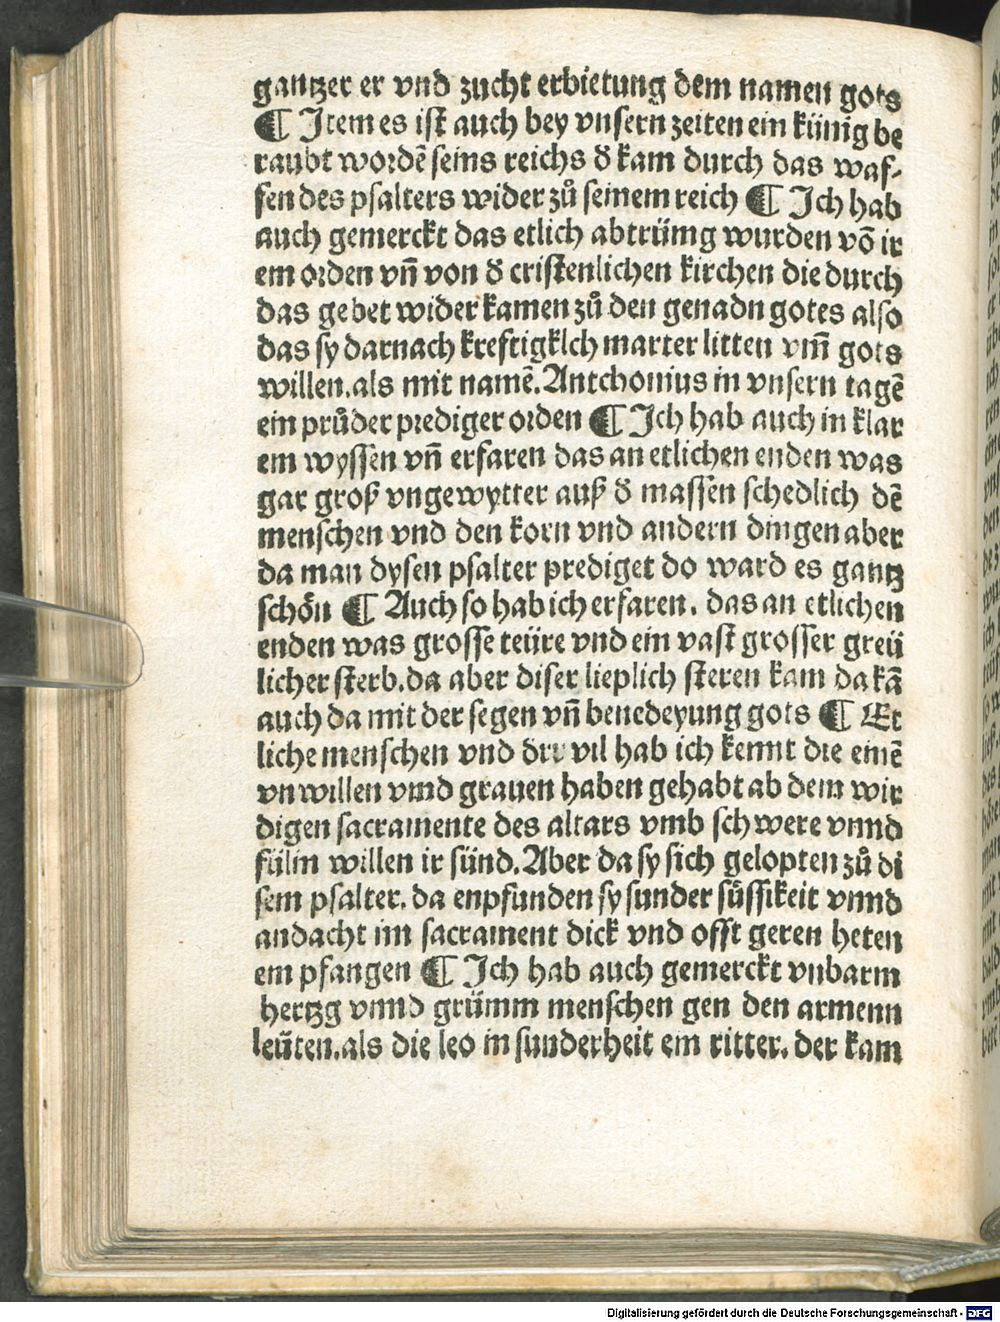 gantzer er vnd zucht erbietung dem namen gots
¶ Item es ist auch bey vnsern zeiten ein künig be
raubt wordē seins reichs d̕ kam durch das waf⸗
fen des psalters wider zů seinem reich ¶ Ich hab
auch gemerckt das etlich abtrünig wurden vō ir
em orden vn̄ von d̕ cristenlichen kirchen die durch
das gebet wider kamen zů den genadn gotes also
das sy darnach kreftigklch marter litten vm̄ gots
willen.als mit namē.Antchonius in vnsern tagē
ein průder prediger orden ¶ Ich hab auch in klar
em wyssen vn̄ erfaren das an etlichen enden was
gar groß vngewytter auß d̕ massen schedlich dē
menschen vnd den korn vnd andern dingen aber
da man dysen psalter prediget do ward es gantz
schön ¶ Auch so hab ich erfaren. das an etlichen
enden was grosse teüre vnd ein vast grosser greü
licher sterb.da aber diser lieplich steren kam da kā
auch da mit der segen vn̄ benedeyung gots ¶ Et
liche menschen vnd der vil hab ich kennt die einē
vnwillen vnnd grauen haben gehabt ab dem wir
digen sacramente des altars vmb schwere vnnd
fülin willen ir sünd.Aber da sy sich gelopten zů di
sem psalter.da enpfunden sy sunder sůssikeit vnnd
andacht im sacrament dick vnd offt geren heten
em pfangen ¶ Ich hab auch gemerckt vnbarm
hertzg vnnd grümm menschen gen den armenn
leüten.als die leo in sunderheit em ritter. der kam
Digitalisierung gefördert durch die Deutsche Forschungsgemeinschaft - DFG